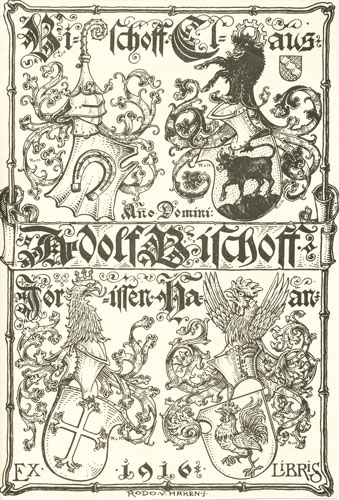 Bischoff · Claus:
Año Domini:
Adolf Bischoff
Jor-issen-Haan:
EX · 1916 · LIBRIS
RODO · V · HAKEN · J ·